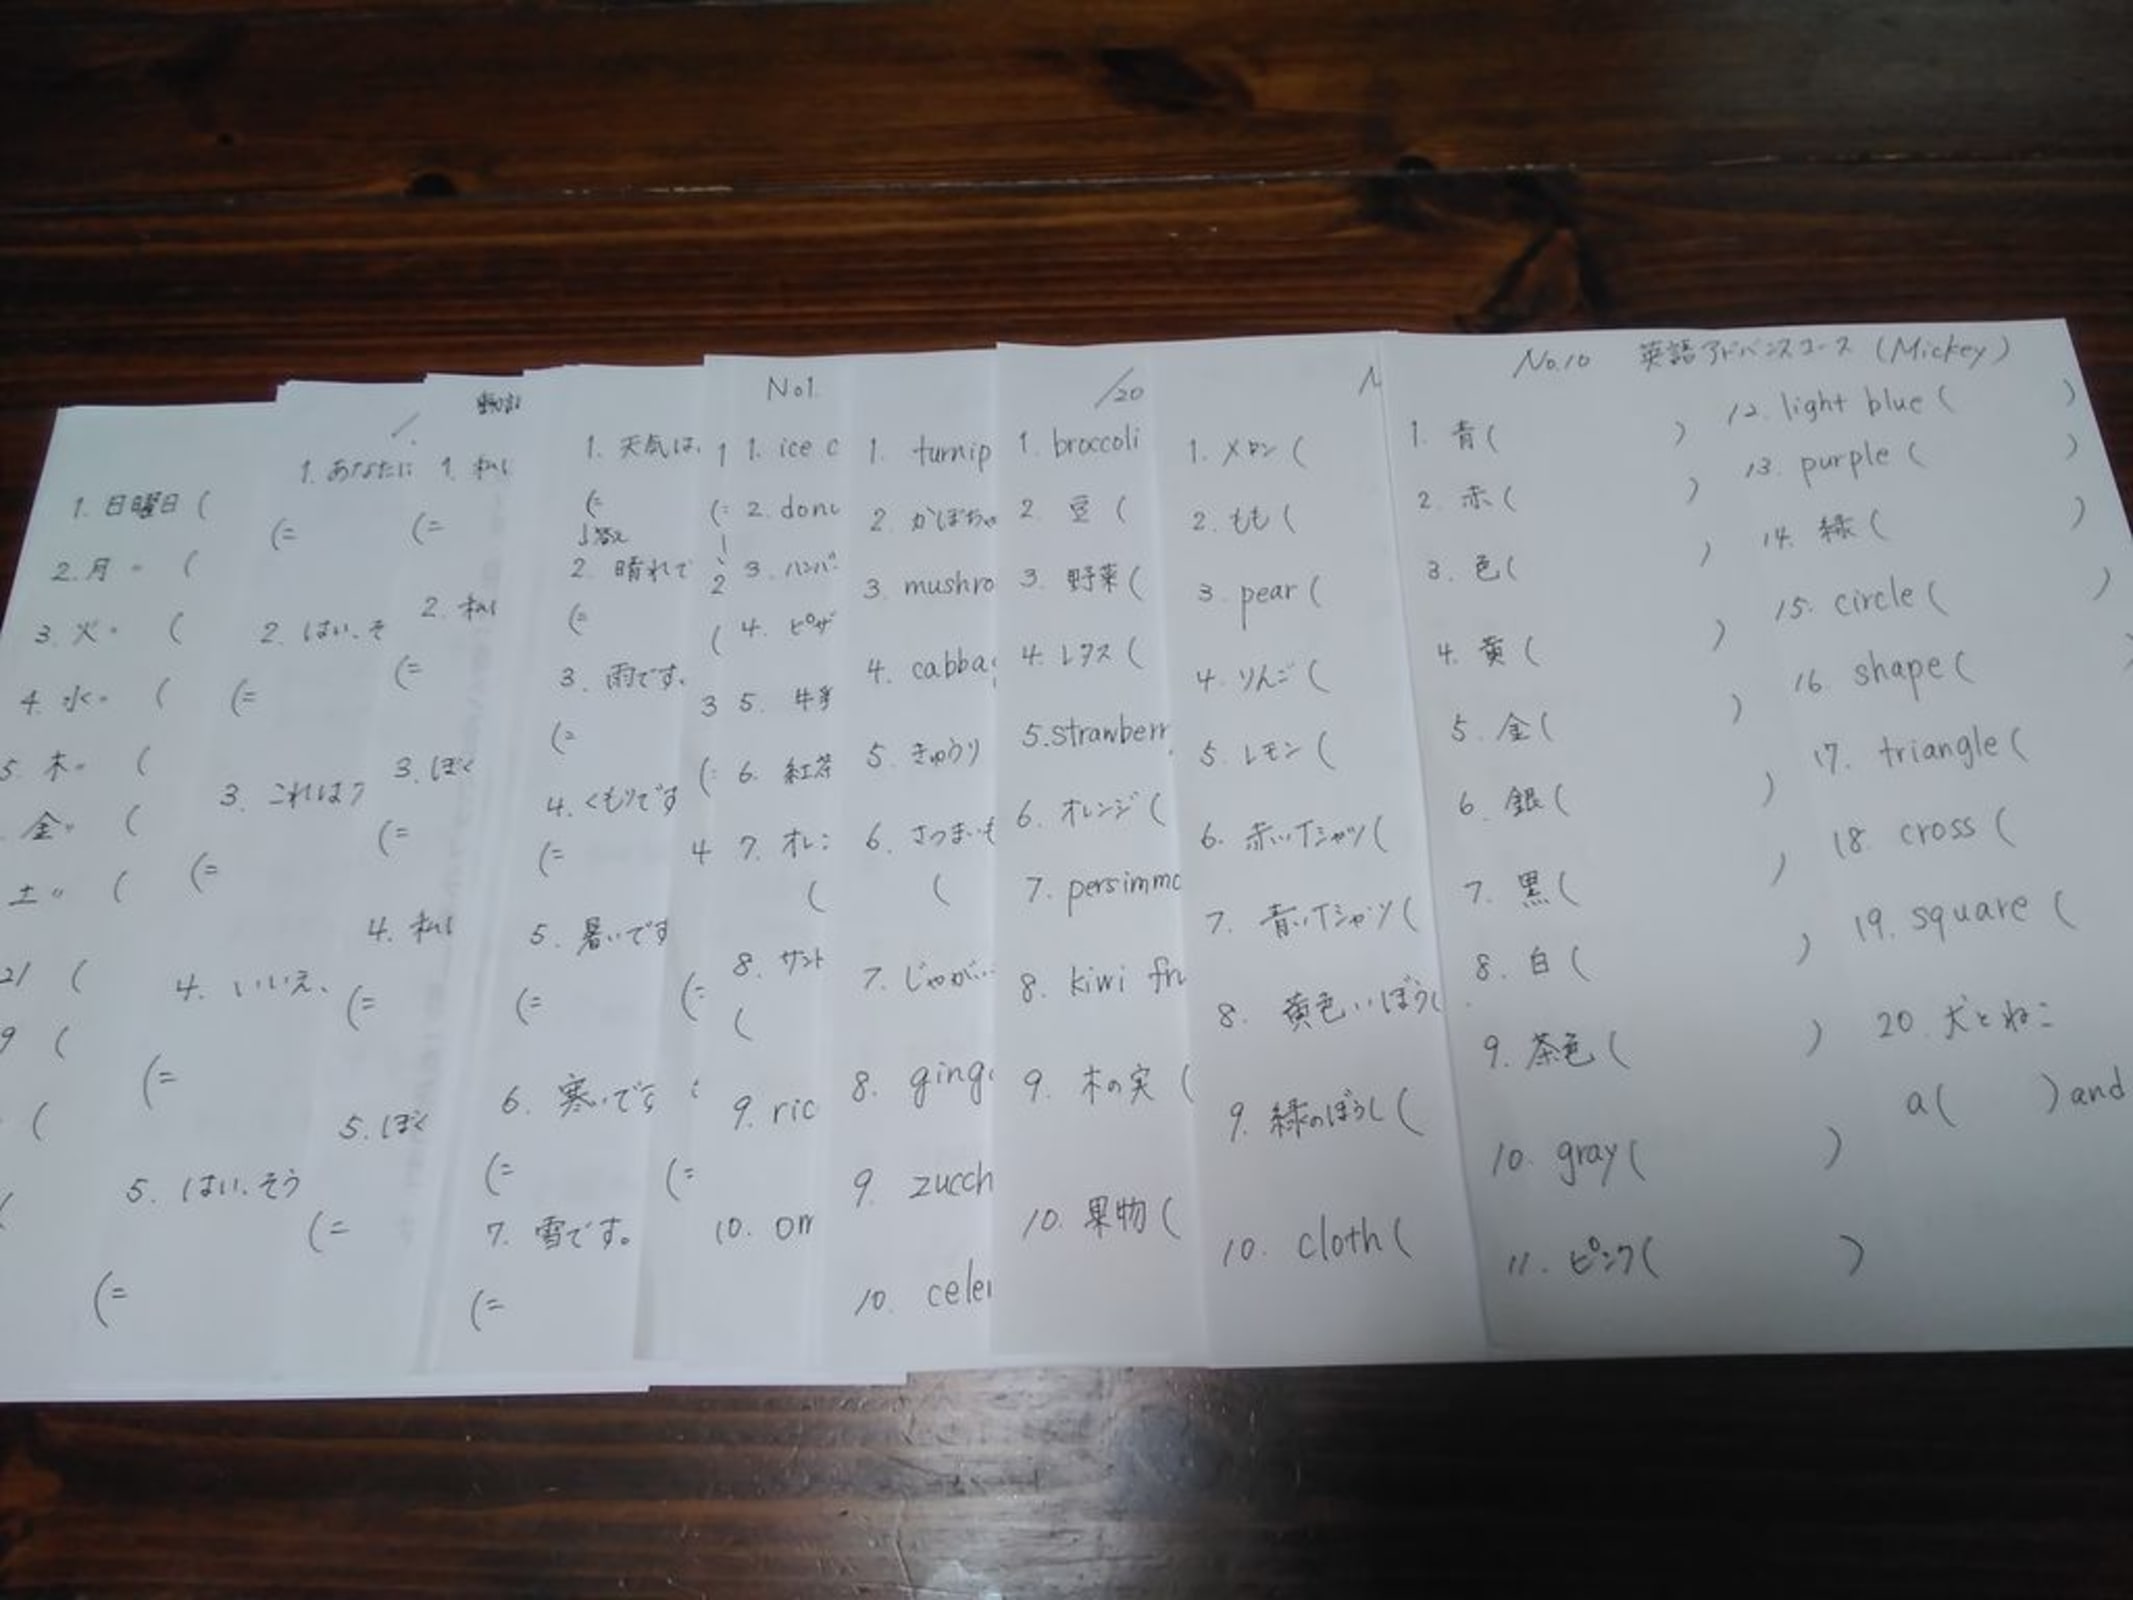 1. 日曜日 (
2. 月 〃 (
3. 火 〃 (
4. 水 〃 (
5. 木 〃 (
金 〃 (
土 〃 (
21 (
9 (
(
(
1. あなたに
(=
2. はい、そ
(=
3. これは
(=
4. いいえ、
(=
5. はい、そう
(=
動詞
1. 私
(=
2. 私
(=
3. ぼく
(=
4. 私
(=
5. ぼく
(=
1. 天気は、
(=
↓答え
2. 晴れで
(=
3. 雨です。
(=
4. くもりです
(=
5. 暑いです
(=
6. 寒いです
(=
7. 雪です。
(=
1
(=
2
(
3
(=
4
(=
(=
No1
1. ice c
2. donu
3. ハンバ
4. ピザ
5. 牛乳
6. 紅茶
7. オレン
(
8. サント
(
9. ric
10. om
1. turnip
2. かぼちゃ
3. mushro
4. cabba
5. きゅうり
6. さつまいも
(
7. じゃがい
8. ging
9. zucch
10. celer
/20
1. broccoli
2. 豆 (
3. 野菜 (
4. レタス (
5. strawberr
6. オレンジ (
7. persimmo
8. kiwi fru
9. 木の実 (
10. 果物 (
N
1. メロン (
2. もも (
3. pear (
4. りんご (
5. レモン (
6. 赤いTシャツ (
7. 青いTシャツ (
8. 黄色いぼうし
9. 緑のぼうし (
10. cloth (
No.10 英語アドバンスコース (Mickey)
1. 青 ( )
2. 赤 ( )
3. 色 ( )
4. 黄 ( )
5. 金 ( )
6. 銀 ( )
7. 黒 ( )
8. 白 ( )
9. 茶色 ( )
10. gray ( )
11. ピンク ( )
12. light blue ( )
13. purple ( )
14. 緑 ( )
15. circle ( )
16. shape ( )
17. triangle (
18. cross (
19. square (
20. 犬とねこ
a ( ) and